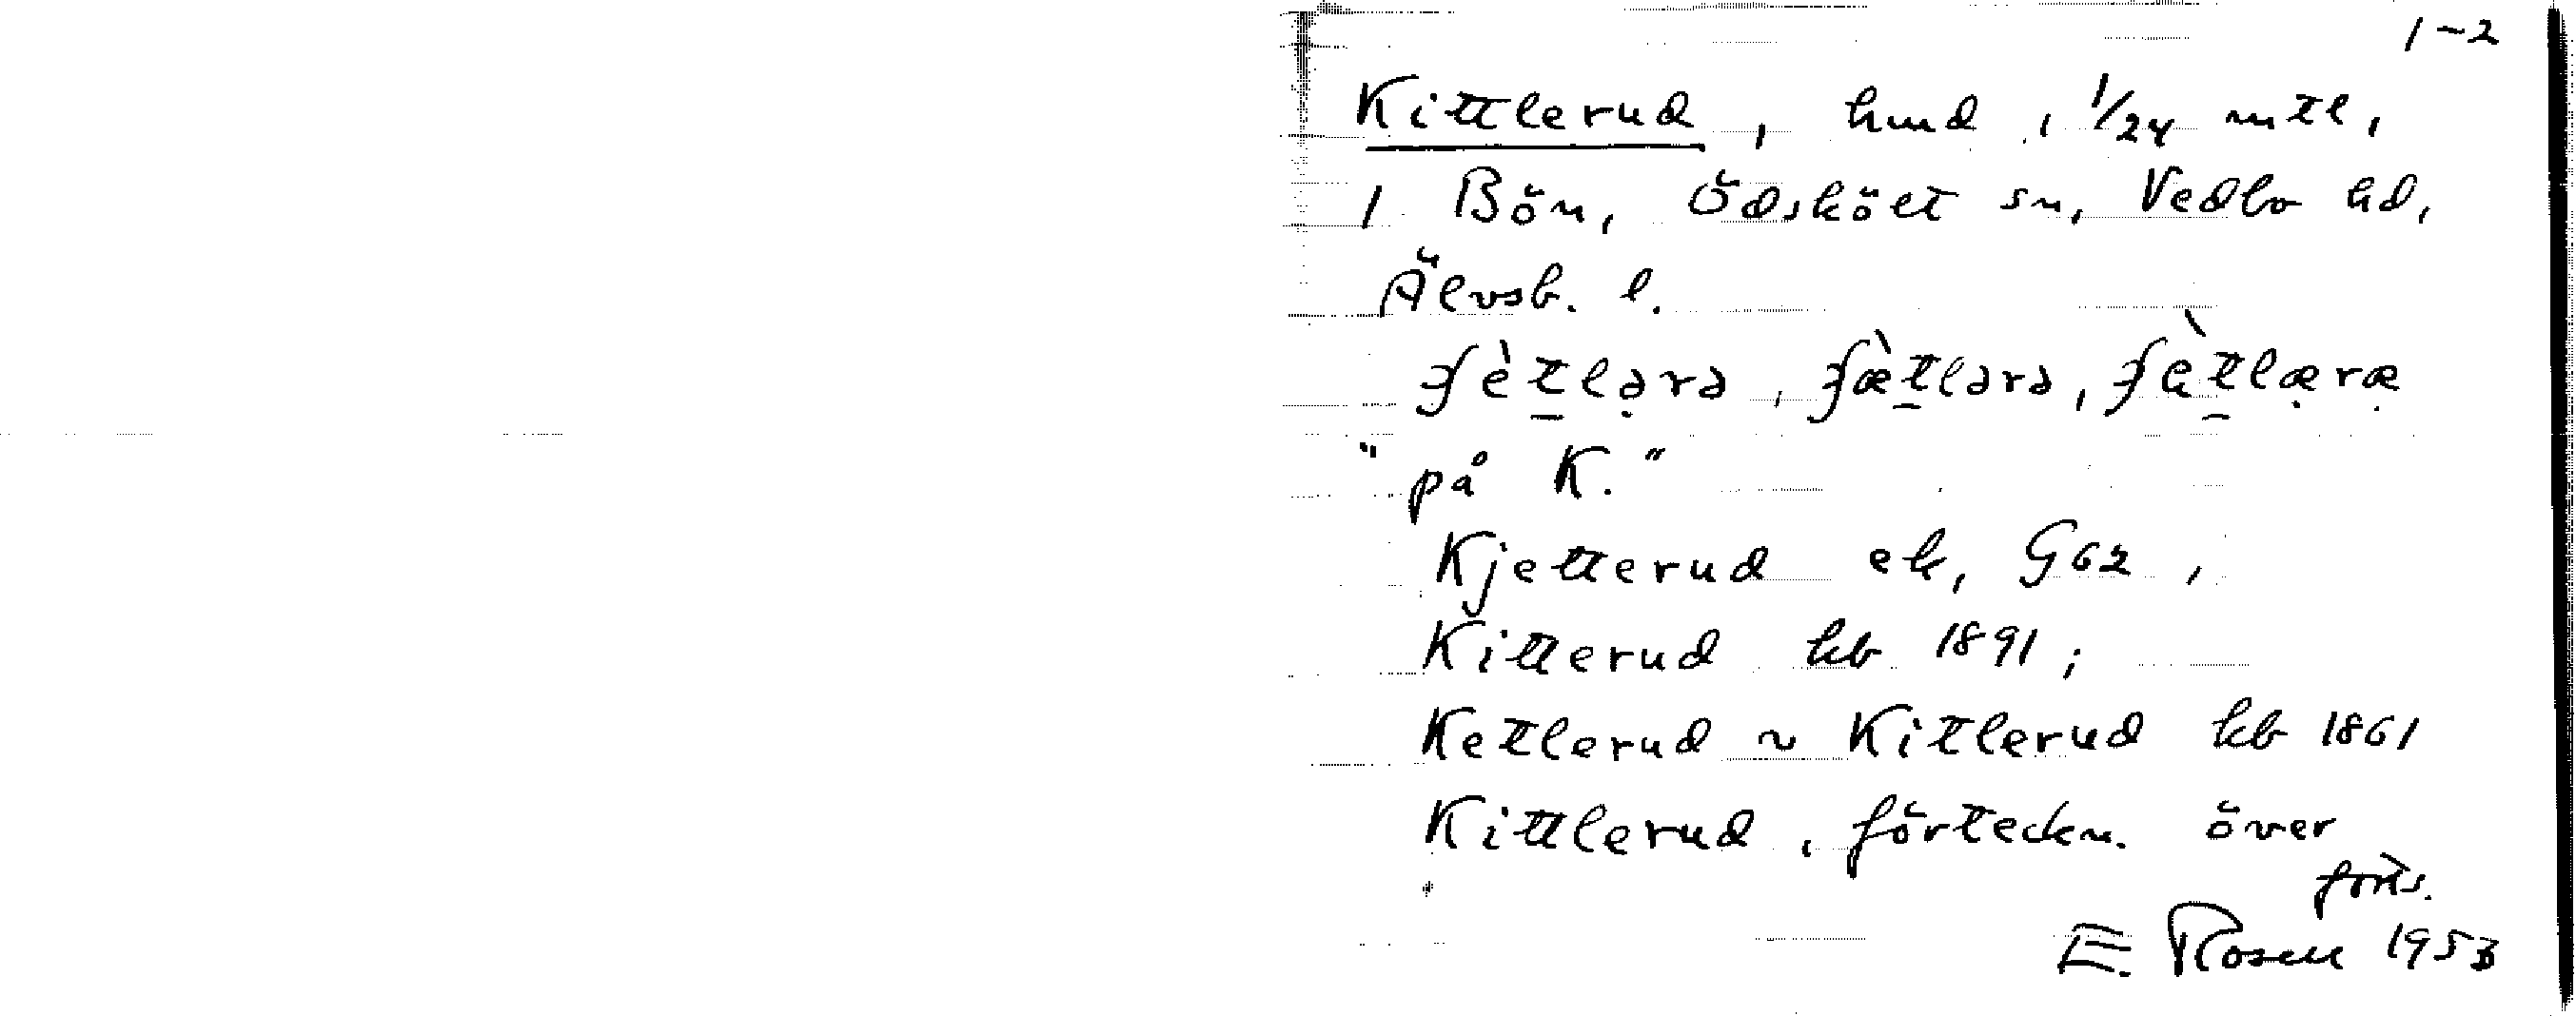 1-2
Kittlerud, hmd, 1/24 mtl,
1 Bön, Ödsköet sn, Vedbo hd,
Älvsb. l.
"på K."
Kjetterud ek, G62,
Kitterud kb 1891;
Ketlerud ~ Kitlerud kb 1861
Kittlerud, förteckn. över
forts.
E. Rosell 1953